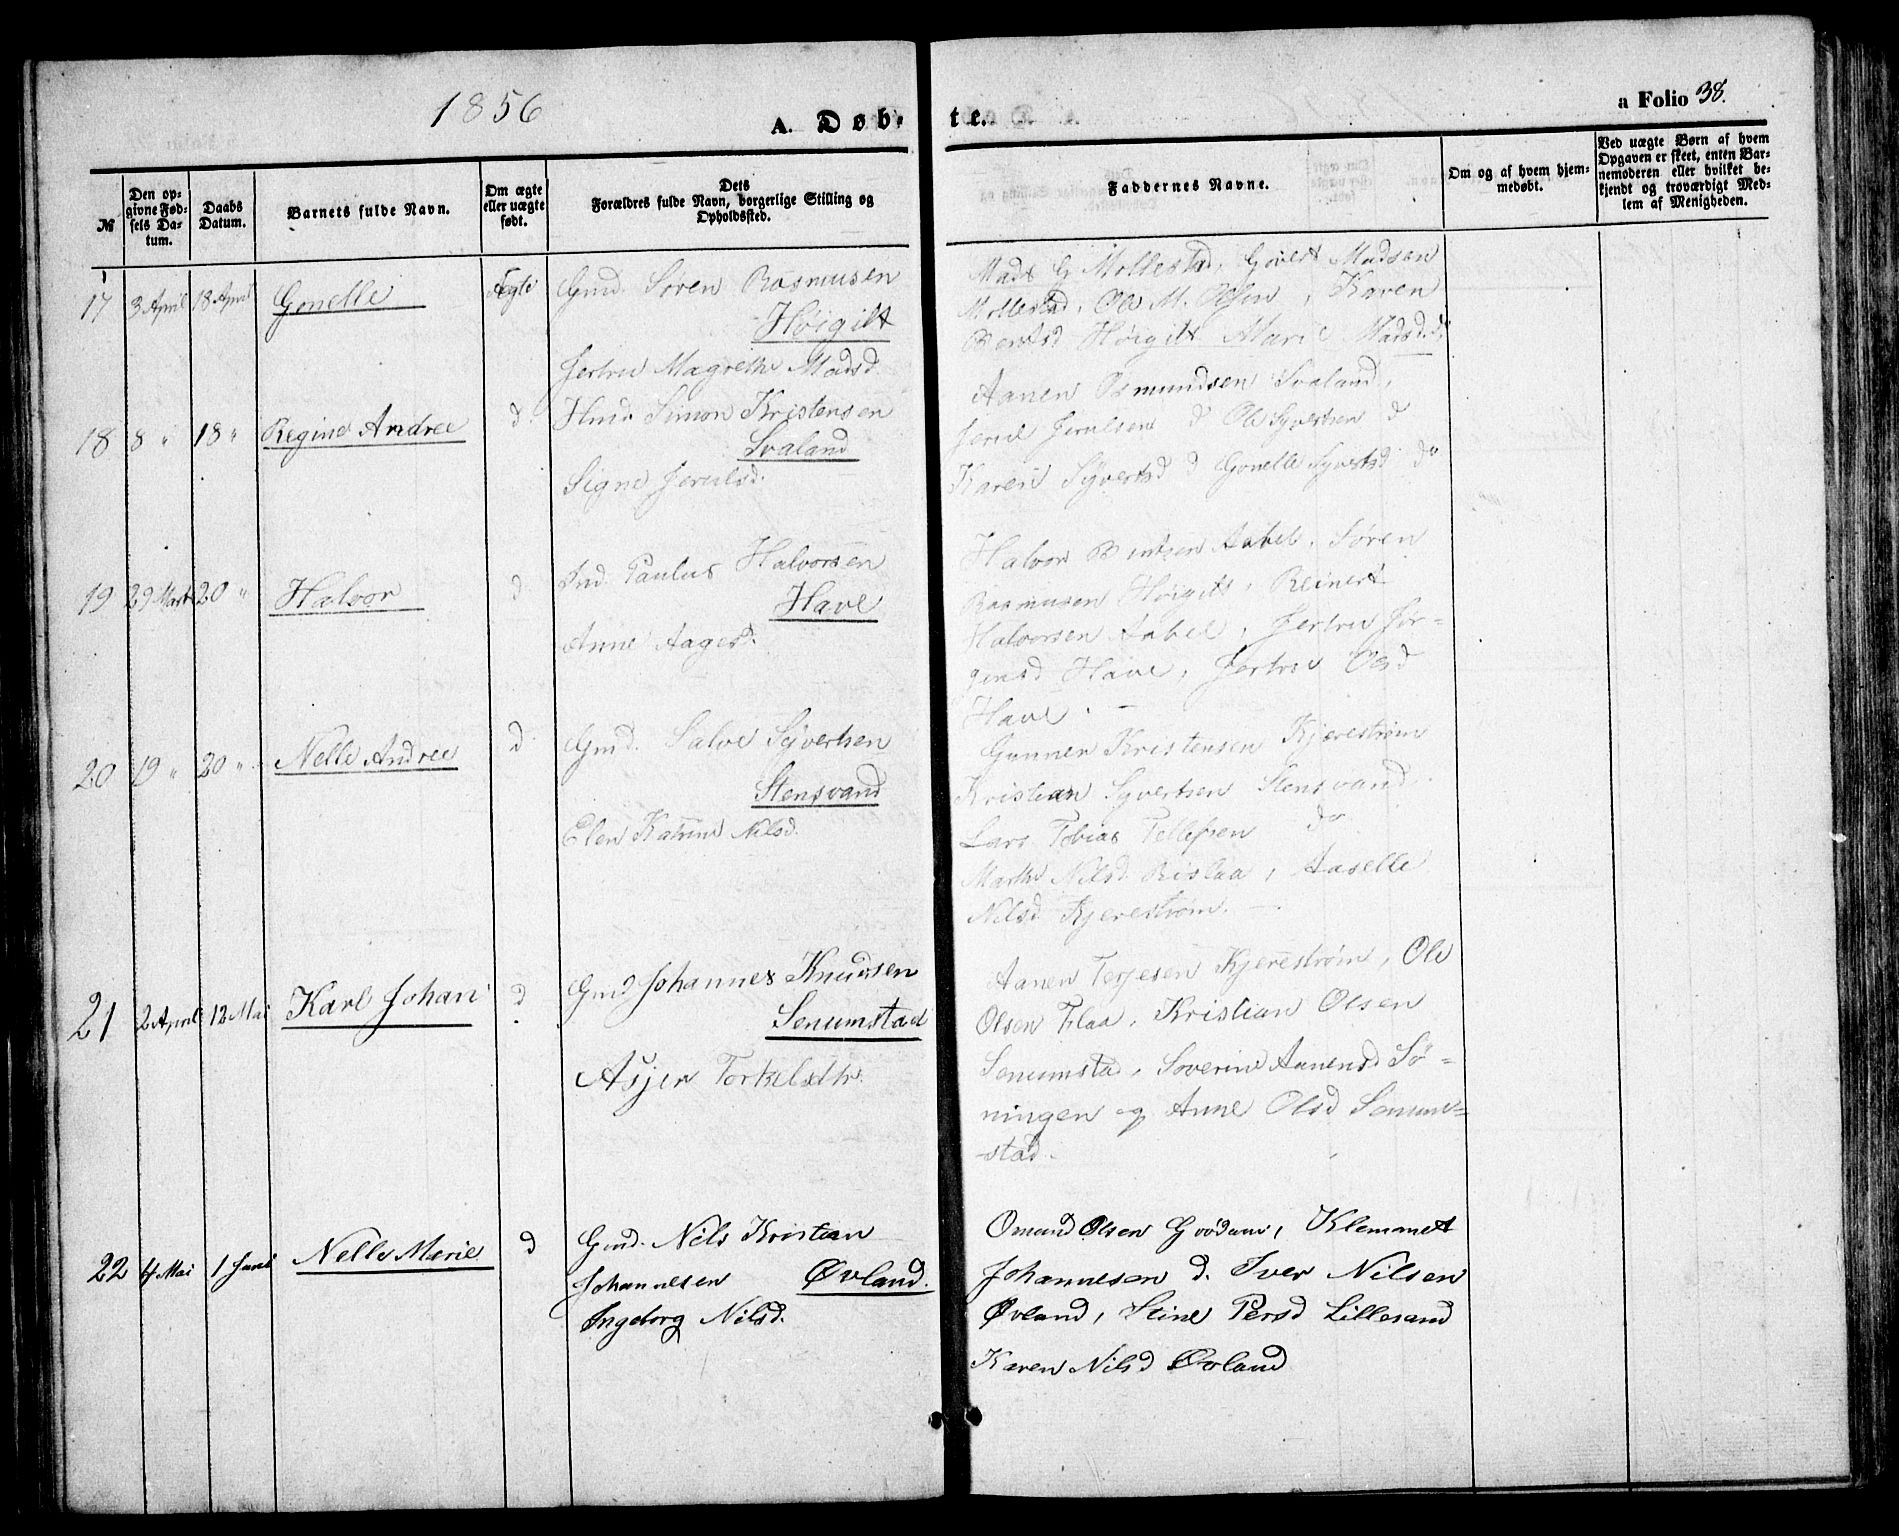 1856
A. Døb-
te.
a Folio 38.
№
Den op-
givne Fød-
sels Da-
tum.
Daabs
Datum.
Barnets fulde Navn.
Om ægte
eller uægte
født.
Dets
Forældres fulde Navn, borgerlige Stilling og
Opholdssted.
Faddernes Navne.
Om og af hvem hjem-
medøbt.
Ved uægte Børn af hvem
Opgaven er skeet, enten Bar-
nemoderen eller hvilket be-
kjendt og troværdigt Med-
lem af Menigheden.
17 3 April 18 April Gonelle Ægte Gmd. Søren Rasmusen
Høigilt
Jertru Magrethe Madsd.
Mads G Mollestad, Govert Madsen
Mollestad, Ole M. Olsen, Karen
Bentsd Høigilt Marie Madsd. do
18 8 " 18 " Regine Andree d. Huus Simon Kristensen
Svaland
Signe Jerulsd.
Aanen Osmundsen Svaland,
Jerul Jerulsen d Ole Syvertsen d
Karen Syvertsd d Gonelle Syvertsd do
19 29 Marts 20 " Halvor d Ind. Paulus Halvorsen
Have
Anne Aagesd.
Halvor Bentsen Aabel, Søren
Rasmusen Høigilt, Reinert
Halvorsen Aabel, Jertru Jør-
gensd Have, Jertru Olsd
Have. —
20 19 " 20 " Nelle Andree d. Gmd. Salve Syvertsen
Stensvand
Elen Katrine Nilsd.
Gunner Kristensen Kjerestrøm
Kristian Syvertsen Stensvand.
Lars Tobias Tellefsen do
Marthe Nilsd Rislaa, Aaselle
Nilsd Kjerestrøm. —
21 2 April 12 Mai Karl Johan d. Gmd Johannes Knudsen
Senumstad
Asjer Torkelsdtr.
Aanen Terjesen Kjerestrøm, Ole
Olsen Flaa, Kristian Olsen
Senumstad, Soverine Aanensd Sø-
ningen og Anne Olsd Senum=
-stad.
22 4 Mai 1 Juni Nelle Marie d Gmd. Nils Kristian
Johannesen Øvland.
Ingeborg Nilsd.
Omund Olsen Klemmet
Johannesen d. Iver Nilsen
Øvland, Stine Persd Lillesand
Karen Nilsd Øvland